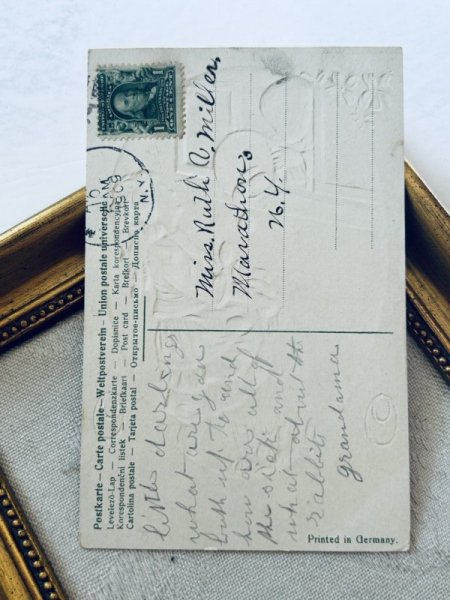 Postkarte — Carte postale — Weltpostverein — Union postale universelle
Levelező-Lap — Correspondenzkarte — Dopisnice — Karta korespondencyjna
Korespondenční lístek — Briefkaart — Post card — Brefkort — Brevkort
Cartolina postale — Tarjeta postal — Открытое-письмо — Дописна карта
1 1
AM
1909
N.Y.
Miss. Ruth A. Miller.
Marathon.
N.Y.
little darlings
what are you
both up to and
how are all of
the and
what about the
rabbits
grandama
Printed in Germany.